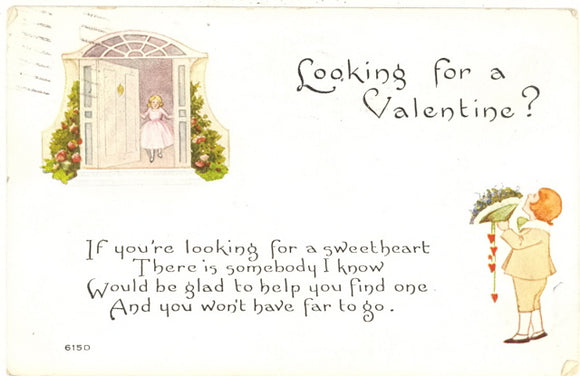 Looking for a
Valentine?
If you're looking for a sweetheart
There is somebody I know
Would be glad to help you find one
And you won't have far to go.
615D